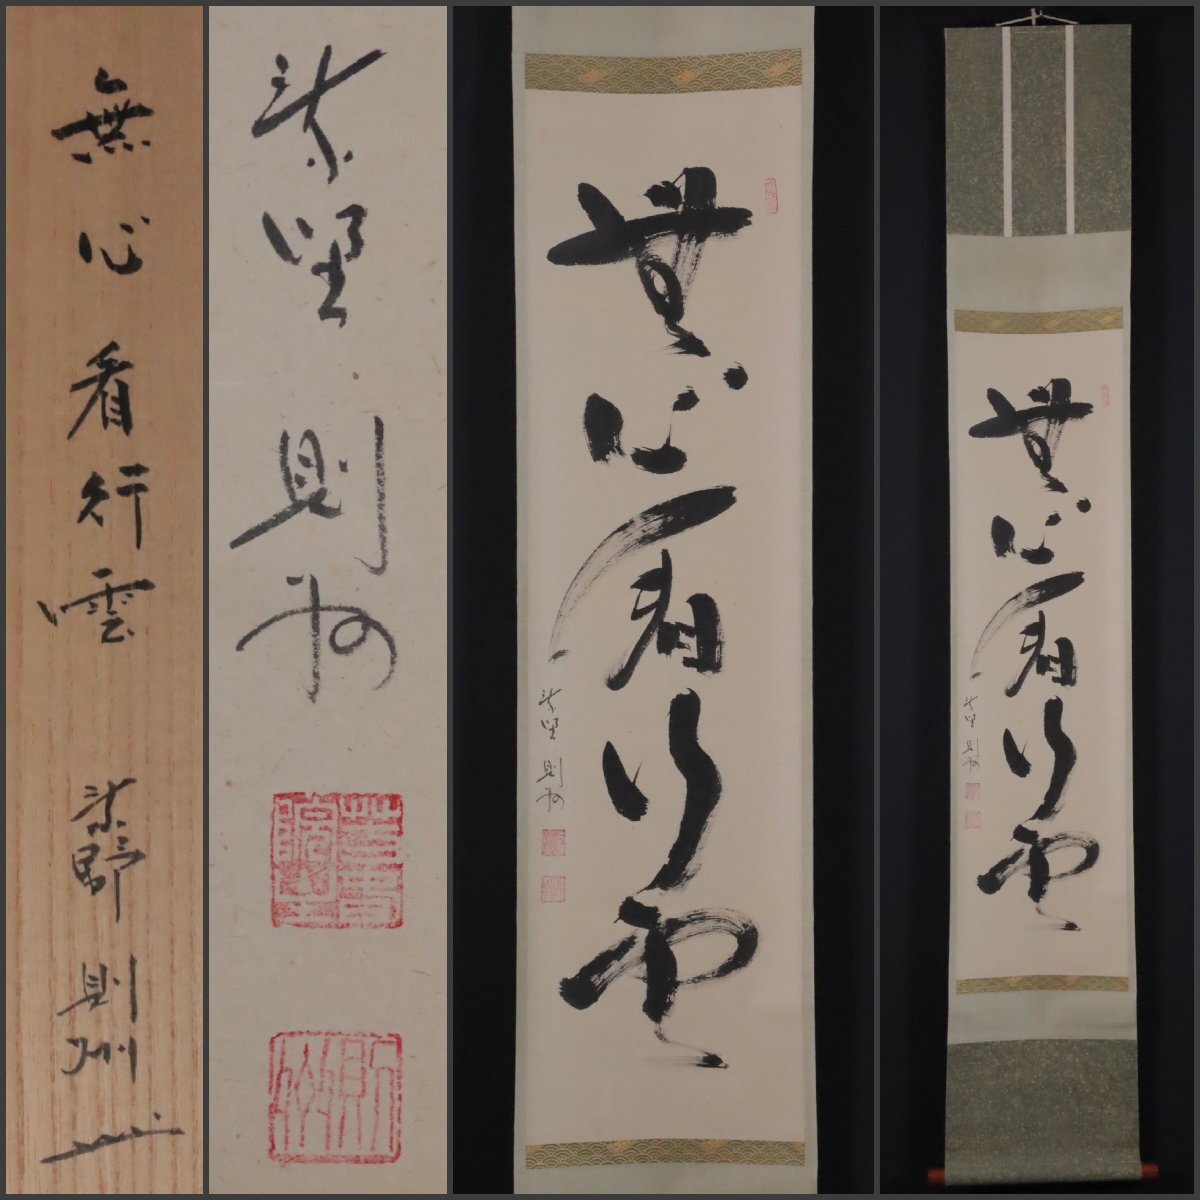 無心看行雲
紫野 則州
紫野 則州
無心看行雲
紫野 則州
無心看行雲
紫野 則州